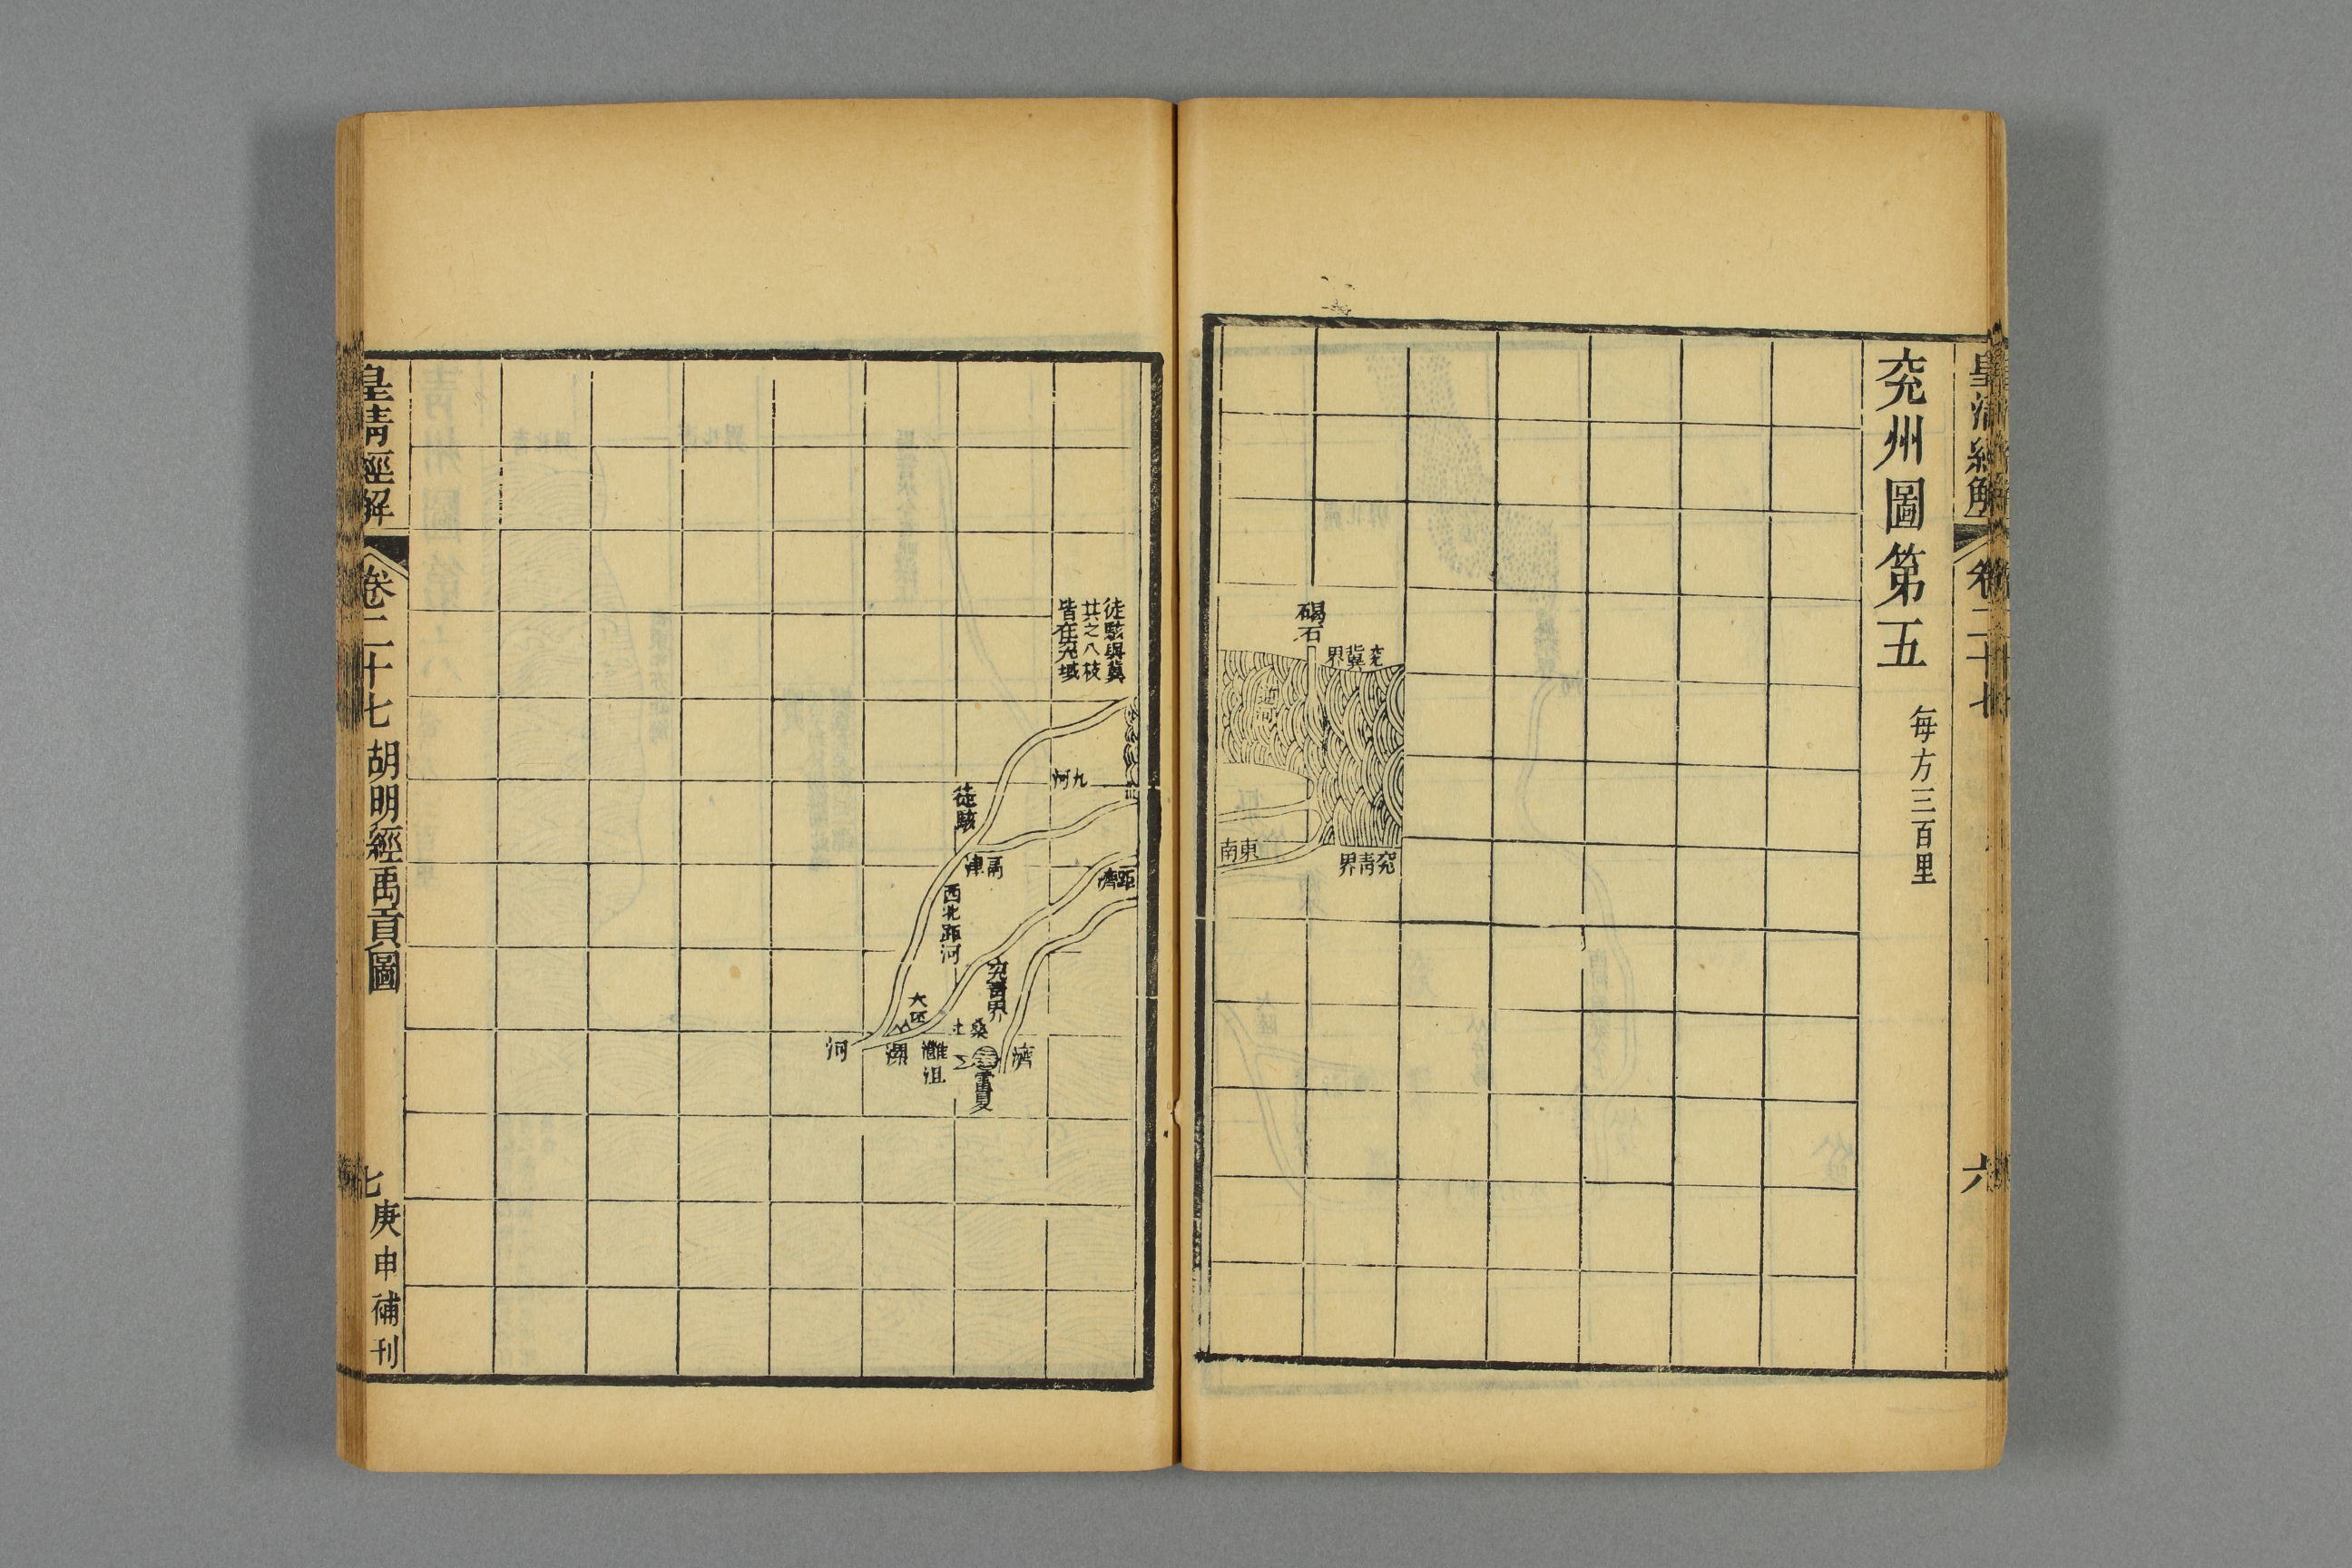 皇清經解
卷二十七
六
兖州圖第五
每方三百里
碣石
兖冀界
逆河
東南
兖青界
徒駭與冀
共之八枝
皆在兖域
九河
徒駭
鬲津
距濟
西北距河
兖青界
大伾
桑土
河
漯
灉
沮
濟
雷夏
皇清經解
卷二十七
胡明經禹貢圖
七
庚申補刊